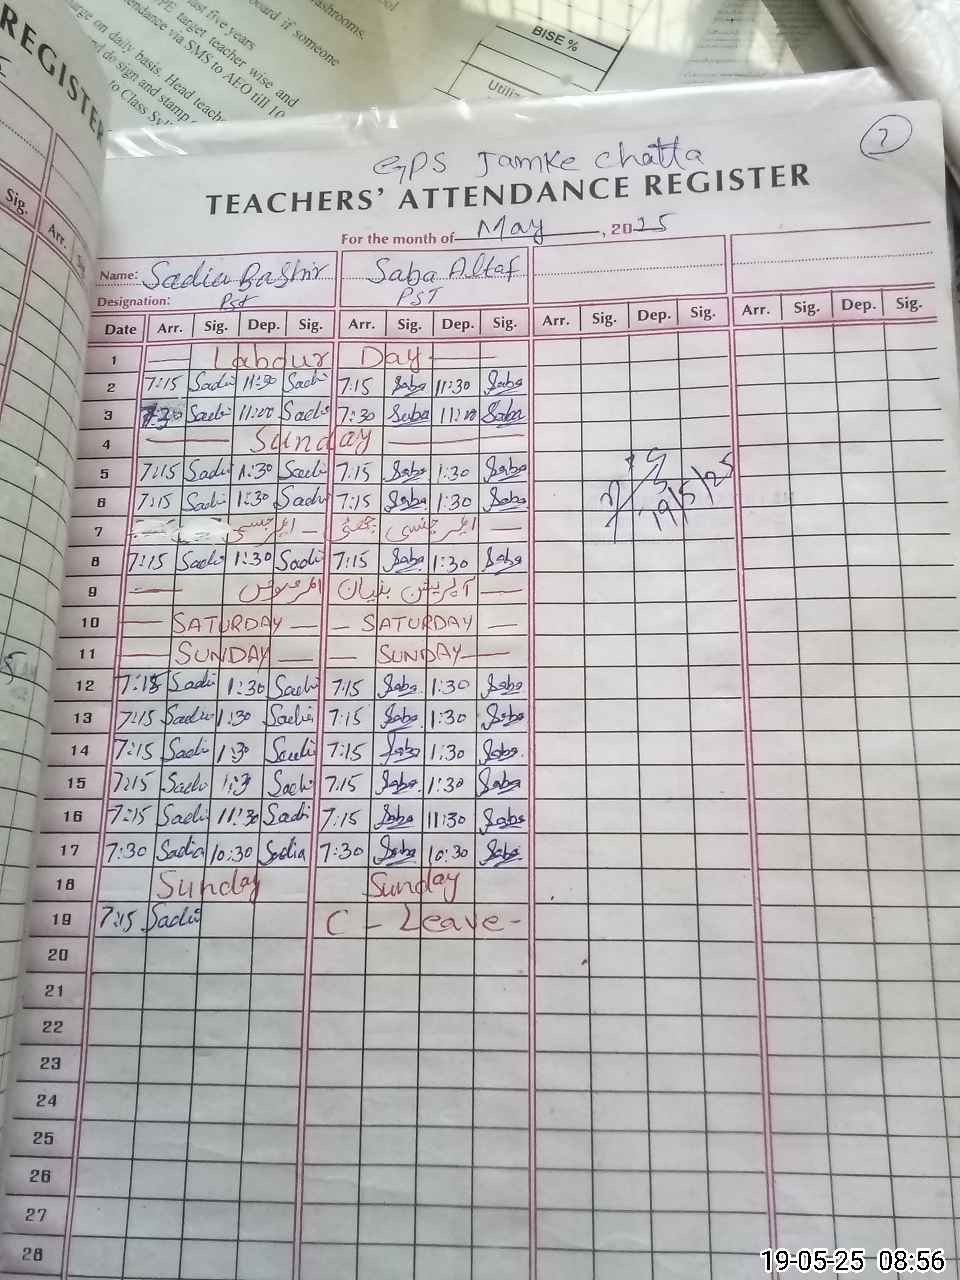 REGISTER
Sig.
Arr.
last five years
board if someone
classrooms.
target teacher wise and
attendance via SMS to AEO till 10
on daily basis. Head
do sign and stamp
to Class
BISE %
GPS Jamke Chatta
7
TEACHERS' ATTENDANCE REGISTER
For the month of May, 2025
Name: Sadia Bashir Saba Altaf
Designation: Pst PST
Date Arr. Sig. Dep. Sig. Arr. Sig. Dep. Sig. Arr. Sig. Dep. Sig. Arr. Sig. Dep. Sig.
1 — Labour Day —
2 7:15 Sadi 11:30 Sadi 7:15 Saba 11:30 Saba
3 7:30 Sadi 11:00 Sadi 7:30 Saba 11:00 Saba
4 — Sunday —
5 7:15 Sadi 1:30 Sadi 7:15 Saba 1:30 Saba
6 7:15 Sadi 1:30 Sadi 7:15 Saba 1:30 Saba
7 — ایمرجنسی — ایمرجنسی چھٹی —
8 7:15 Sadi 1:30 Sadi 7:15 Saba 1:30 Saba
9 — آپریشن بنیان المرصوص —
10 — SATURDAY — — SATURDAY —
11 — SUNDAY — — SUNDAY —
12 7:15 Sadi 1:30 Sadi 7:15 Saba 1:30 Saba
13 7:15 Sadi 1:30 Sadi 7:15 Saba 1:30 Saba
14 7:15 Sadi 1:30 Sadi 7:15 Saba 1:30 Saba
15 7:15 Sadi 1:3 Sadi 7:15 Saba 1:30 Saba
16 7:15 Sadi 11:30 Sadi 7:15 Saba 11:30 Saba
17 7:30 Sadia 10:30 Sadia 7:30 Saba 10:30 Saba
18 Sunday Sunday
19 7:15 Sadi C - Leave -
19/5/25
20
21
22
23
24
25
26
27
28
19-05-25 08:56